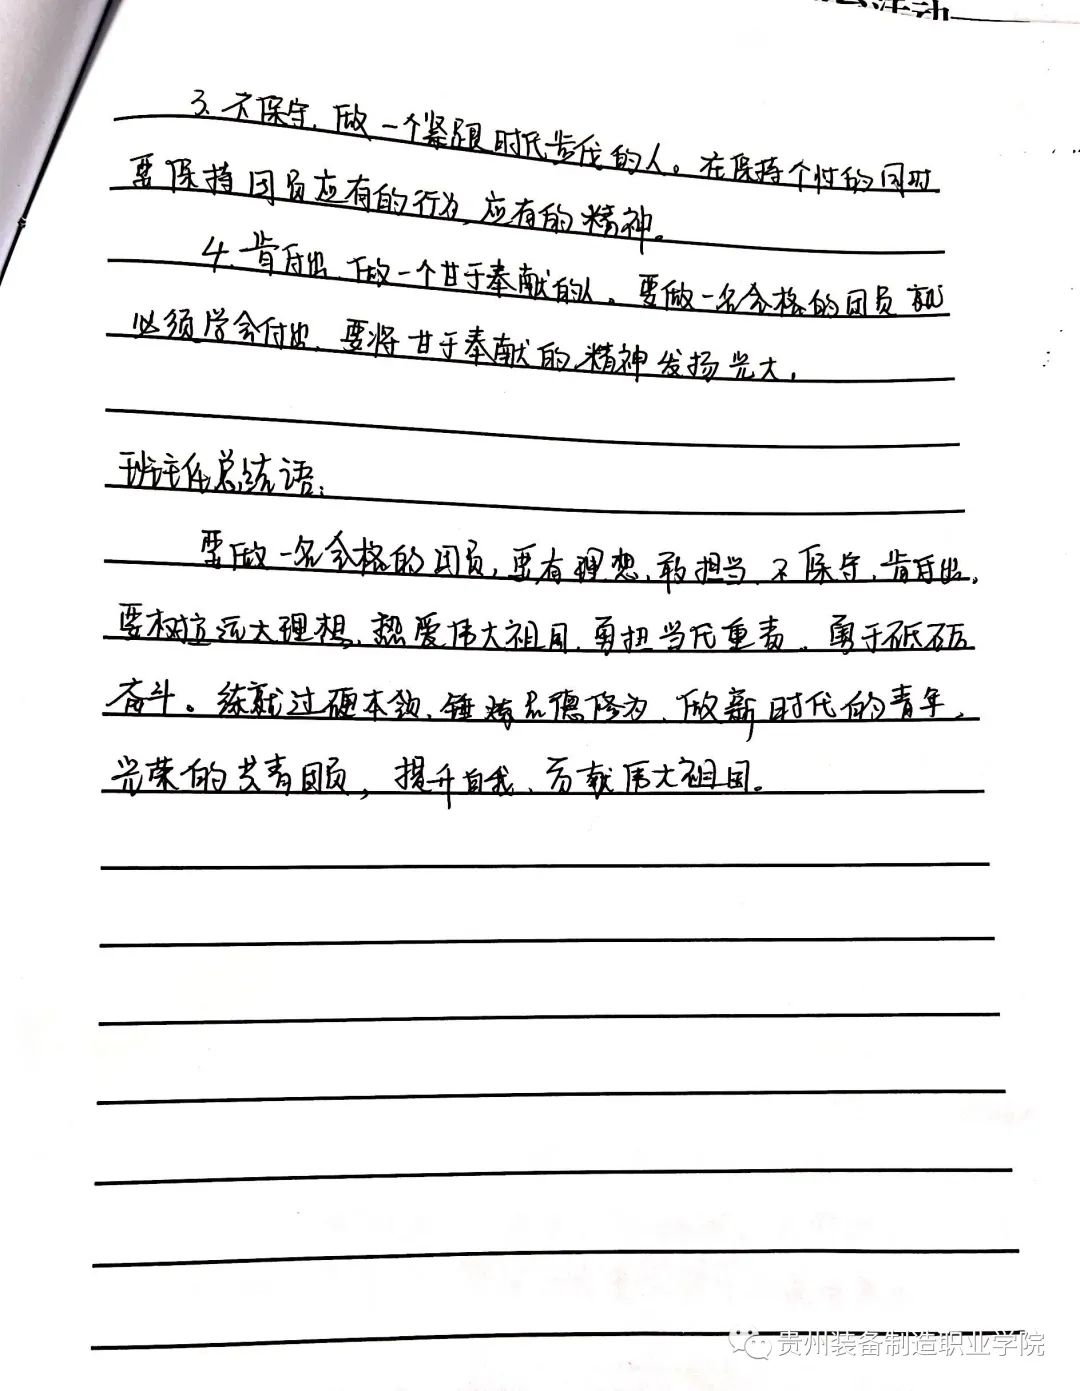 活动
3、不保守,做一个紧跟时代步伐的人。在保持个性的同时
要保持团员应有的行为,应有的精神。
4、肯付出,做一个甘于奉献的人。要做一名合格的团员就
必须学会付出,要将甘于奉献的精神发扬光大,
班主任总结语:
要做一名合格的团员,要有理想、敢担当、不保守、肯付出,
要树立远大理想、热爱伟大祖国、勇担当代重责、勇于砥砺
奋斗。练就过硬本领、锤炼品德修为、做新时代的青年、
光荣的共青团员,提升自我、贡献伟大祖国。
贵州装备制造职业学院